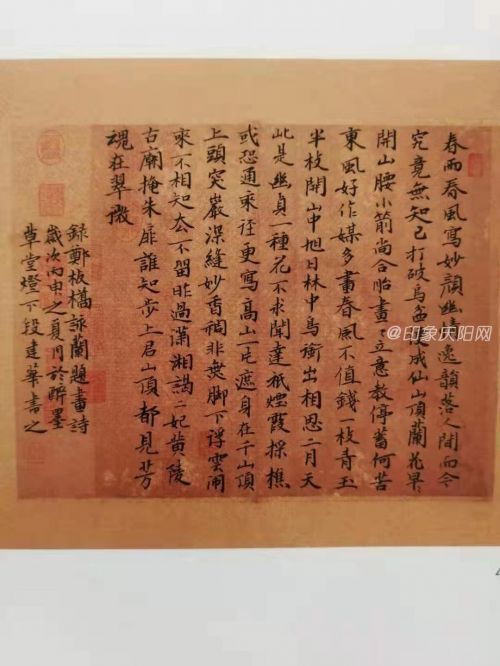 春雨春風寫妙顏幽情逸韻落人間而今
究竟無知己打破烏盆成仙山頂蘭花早
開山腰小箭尚含胎畫立意教停蓄何苦
東風好作媒多畫春風不值錢一枝青玉
半枝開山中旭日林中鳥銜出相思二月天
此是幽貞一種花不求聞達祇煙霞採樵
或恐通來徑更寫高山一片遮身在千山頂
上頭突巖深縫妙香稠非無脚下浮雲鬧
來不相知去不留昨過瀟湘謁二妃黄陵
古廟掩朱扉誰知步上君山頂都見芳
魂在翠微
録鄭板橋詠蘭題畫詩
歲次丙申之夏月於醉墨
草堂燈下段建華書之
@印象庆阳网